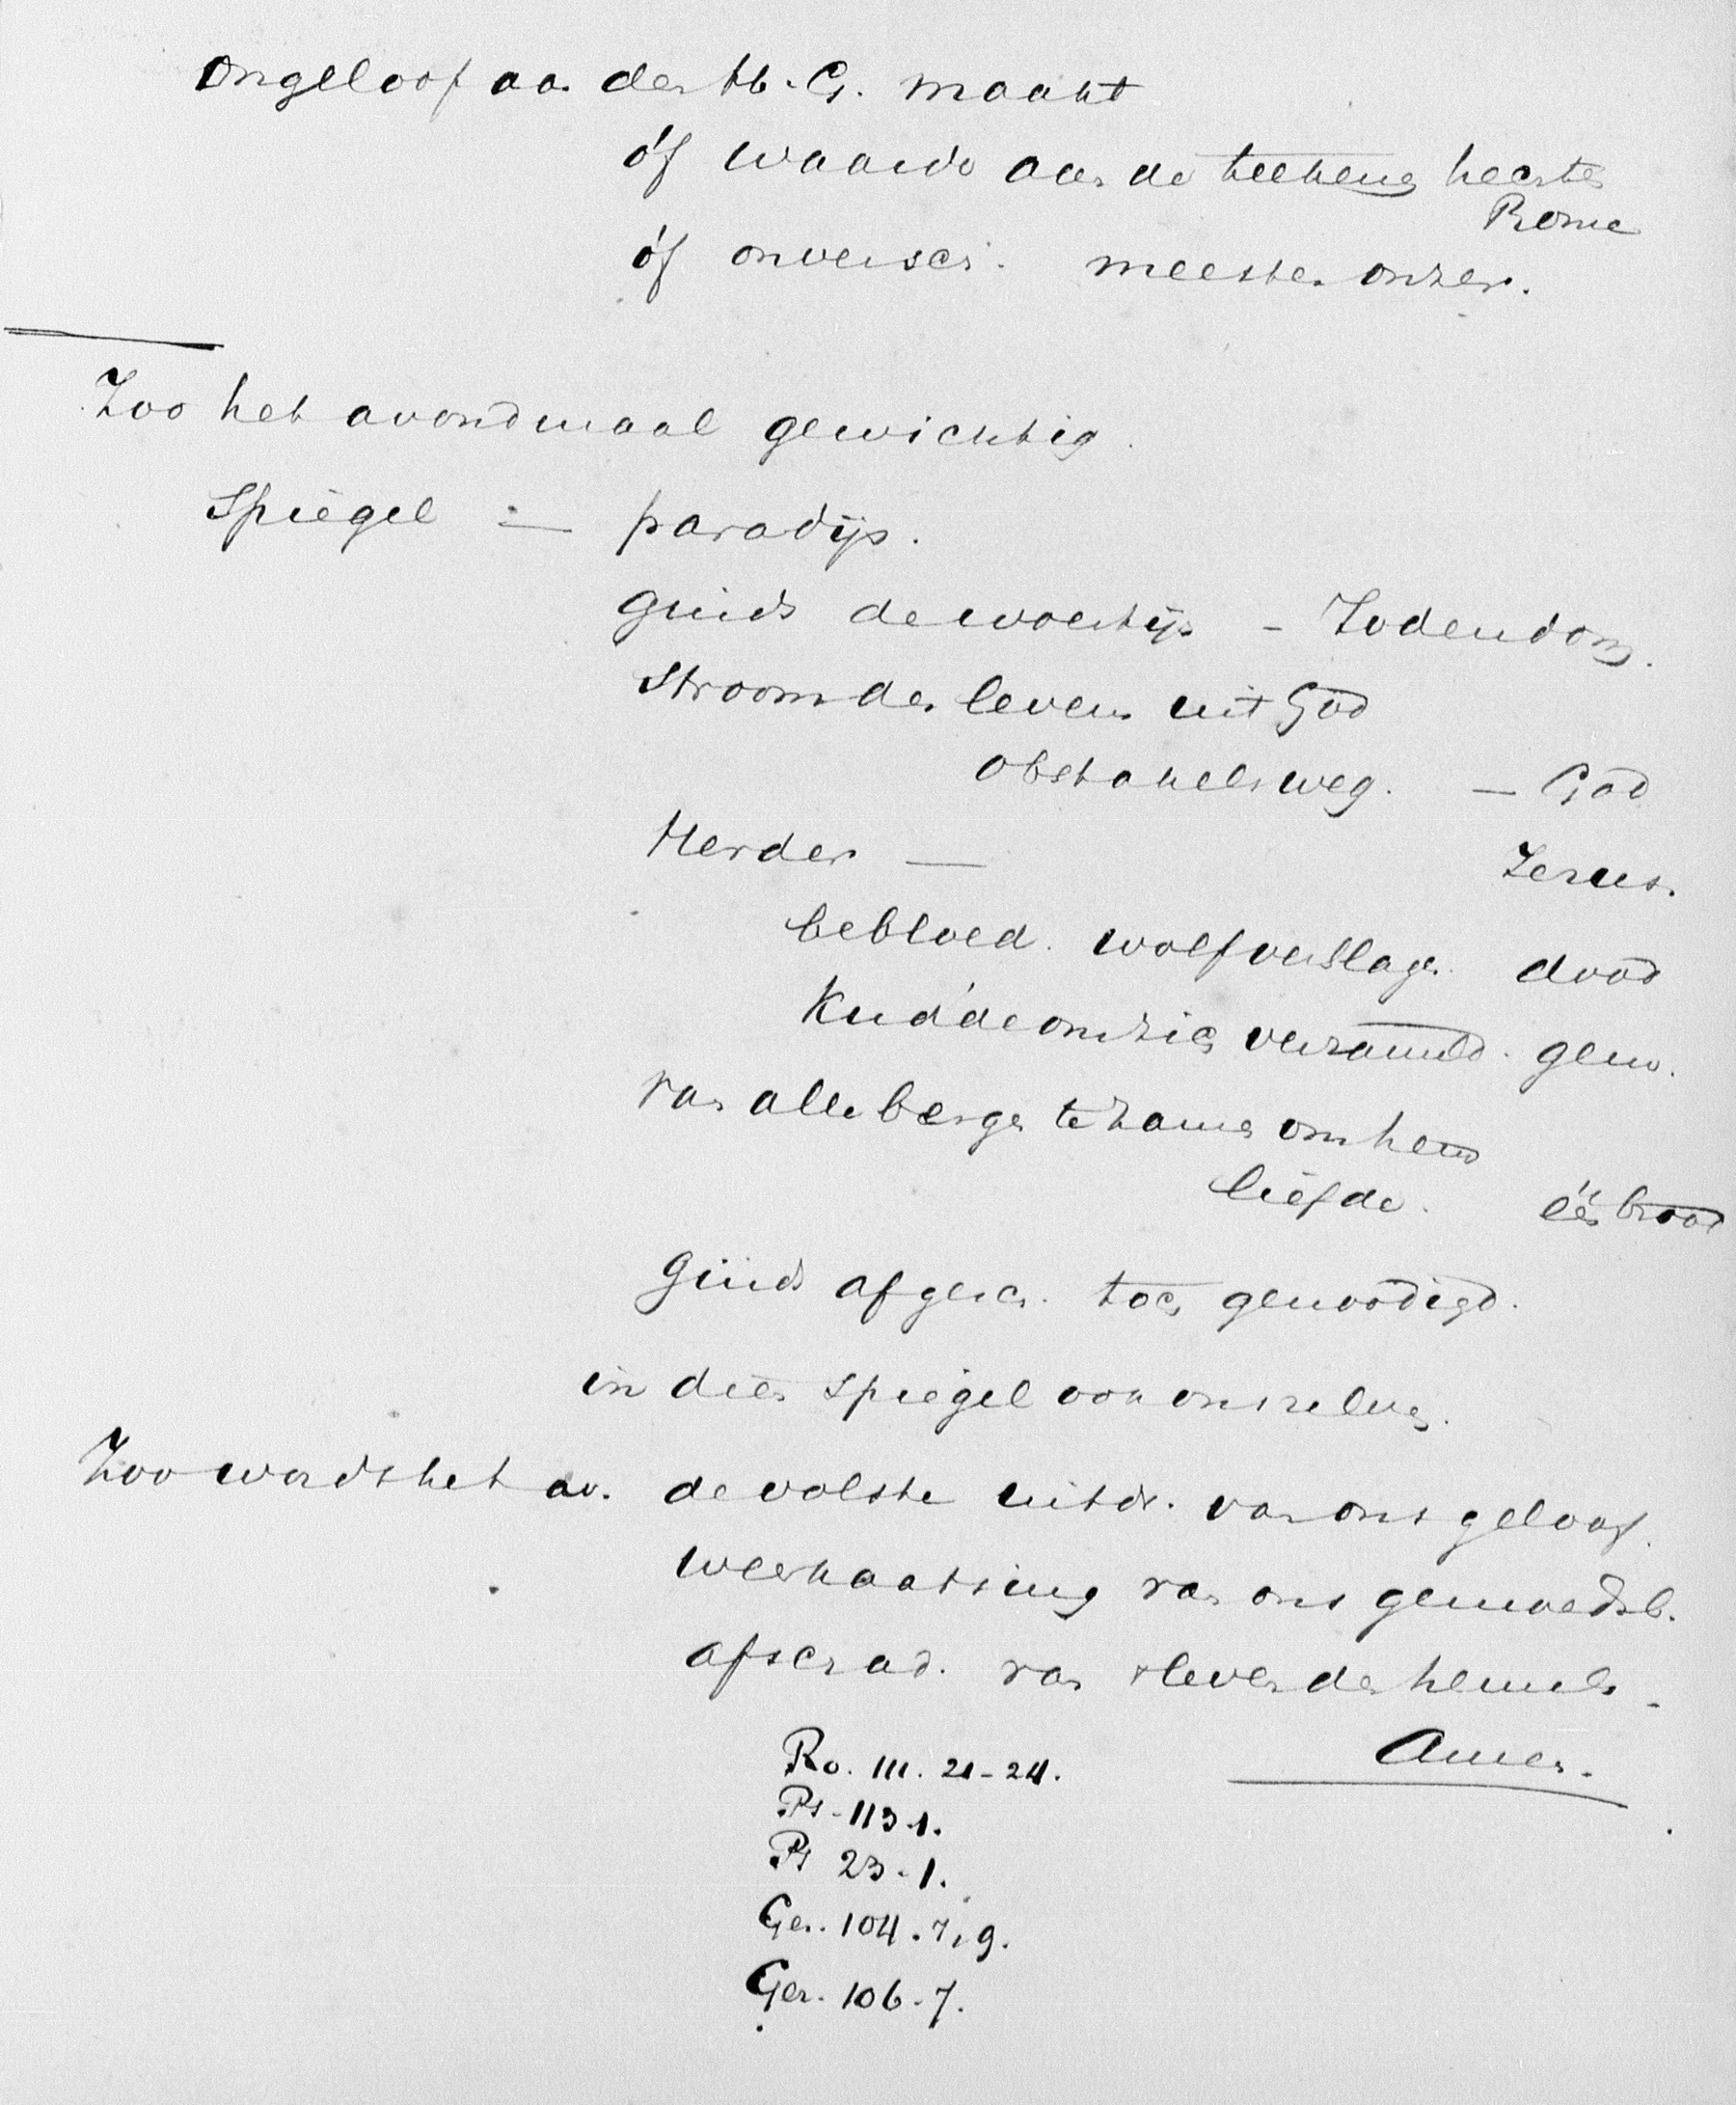 Ongeloof aan den H. G. maakt
óf waarde aan de teekens hechten
Rome
óf onversch. meesten onzer.
Zoo het avondmaal gewichtig.
Spiegel — paradijs.
ginds de woestijn - Jodendom.
Stroom des levens uit God
obstakels weg. — God
Herder — Jezus.
bebloed. wolf verslagen. dood
Kudde om zich verzameld. gem.
van alle bergen te zamen om hem
liefde. één brood
Ginds afgesch. toch genoodigd.
in dien spiegel ook ons zelven.
Zoo wordt het av. de volste uitdr. van ons geloof.
weerkaatsing van ons gemoedsb.
afschad. van 't leven des hemels.
Amen.
Ro. III. 21-24.
Ps. 113.1.
Ps 23.1.
Gez. 104.7,9.
Gez. 106.7.